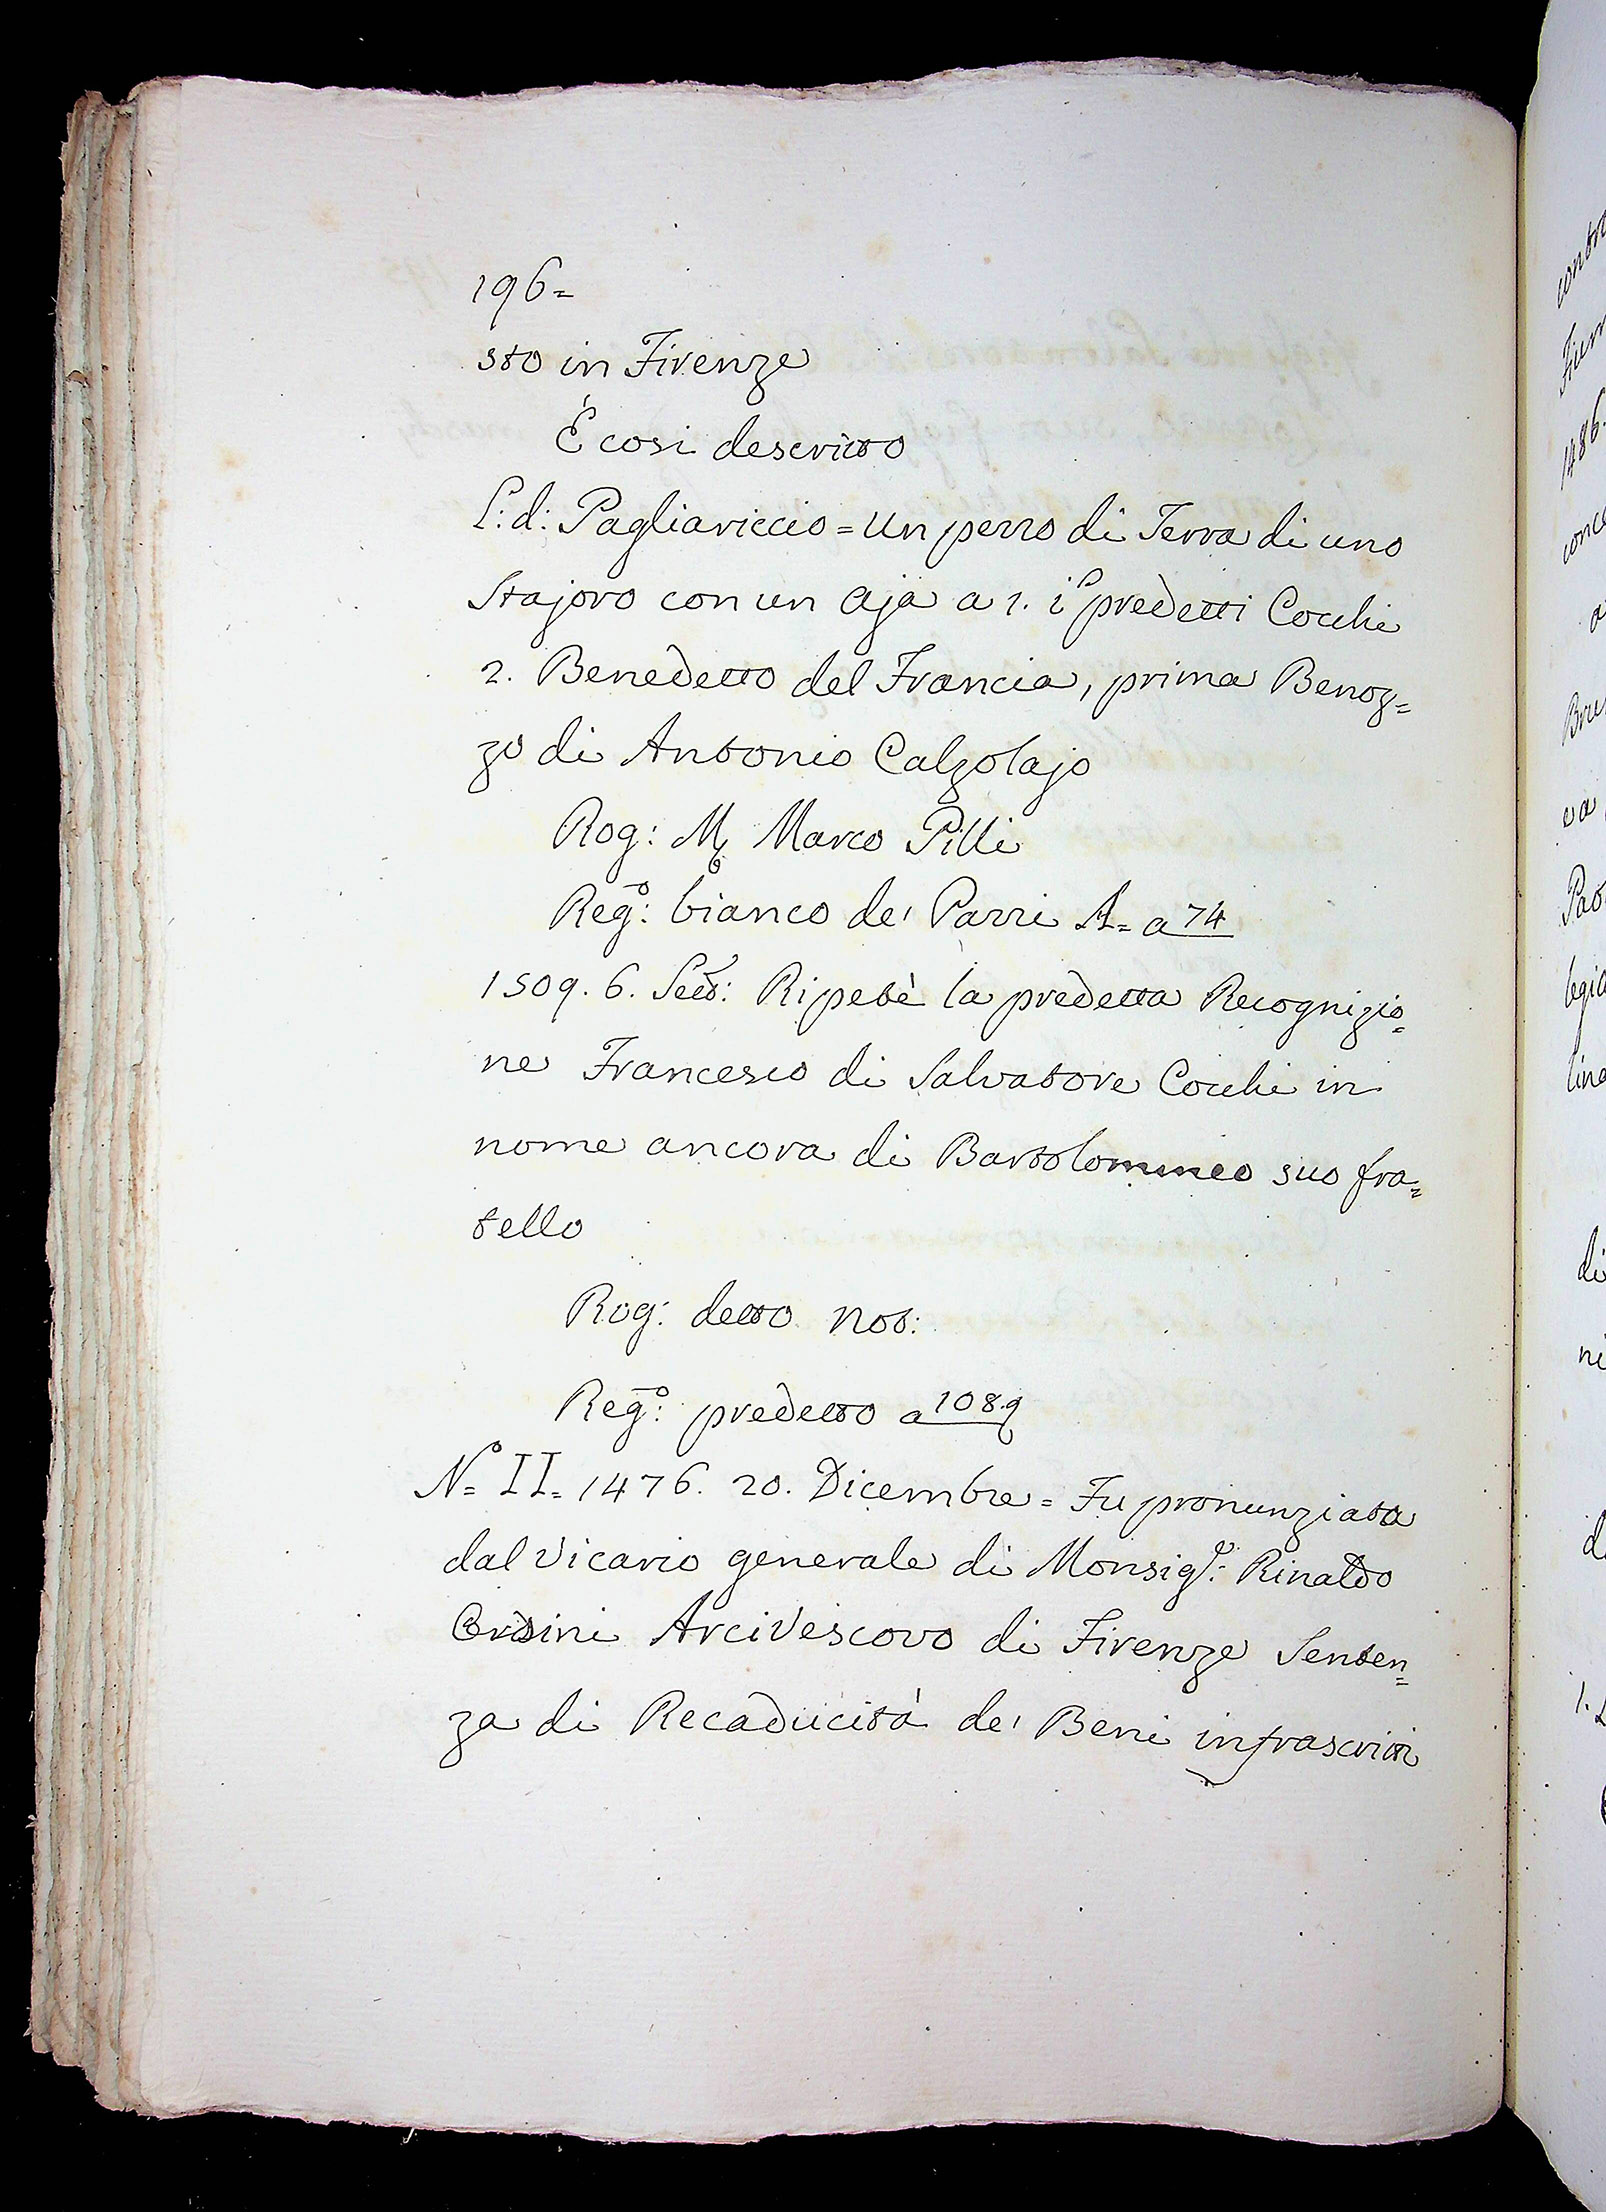 196=
sto in Firenze
È cosi descritto
L: d: Pagliariccio = un pezzo di Terra di uno
Stajoro con un Aja a 1. i predetti Cocchi
2. Benedetto del Francia, prima Benoz=
zo di Antonio Calzolajo
Rog: Mr Marco Pilli
Rego: bianco de' Pazzi A= a 74
1509. 6. Seto: Ripetè la predetta Recognizio=
ne Francesco di Salvatore Cocchi in
nome ancora di Bartolommeo suo fra=
tello
Rog: detto Not:
Rego: predetto a 108.9
No= II= 1476. 20. Dicembre = Fu pronunziata
dal Vicario generale di Monsigr: Rinaldo
Orsini Arcivescovo di Firenze Senten=
za di Recaducità de' Beni infrascritti
contra
1486.
di
ni